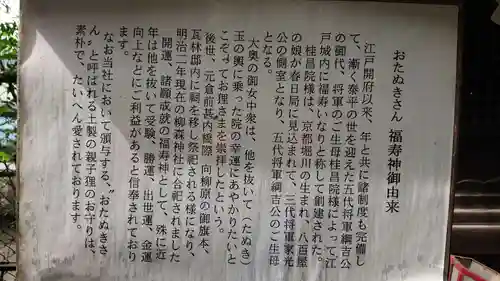 おたぬきさん 福寿神御由来
江戸開府以来、年と共に諸制度も完備し
て、漸く泰平の世を迎えた五代将軍綱吉公
の御代、将軍のご生母桂昌院様によって江
戸城内に福寿いなりと称して創建された。
桂昌院様は、京都堀川の生まれ、八百屋
の娘が春日局に見込まれて、三代将軍家光
公の側室となり、五代将軍綱吉公のご生母
となる。
大奥の御女中衆は、他を抜いて(たぬき)
玉の輿に乗った院の幸運にあやかりたいと
こぞってお狸さまを崇拝したという。
後世、元倉前甚内橋際 向柳原の御旗本、
瓦林邸内に祠を移し祭祀される様になり、
明治二年現在の柳森神社に合祀されました
開運、諸願成就の福寿神として、殊に近
年は他を抜いて受験、勝運、出世運、金運
向上などにご利益があると信奉されており
ます。
なお当社において頒与する、〝おたぬきさ
ん〟と呼ばれる土製の親子狸のお守りは、
素朴で、たいへん愛されております。